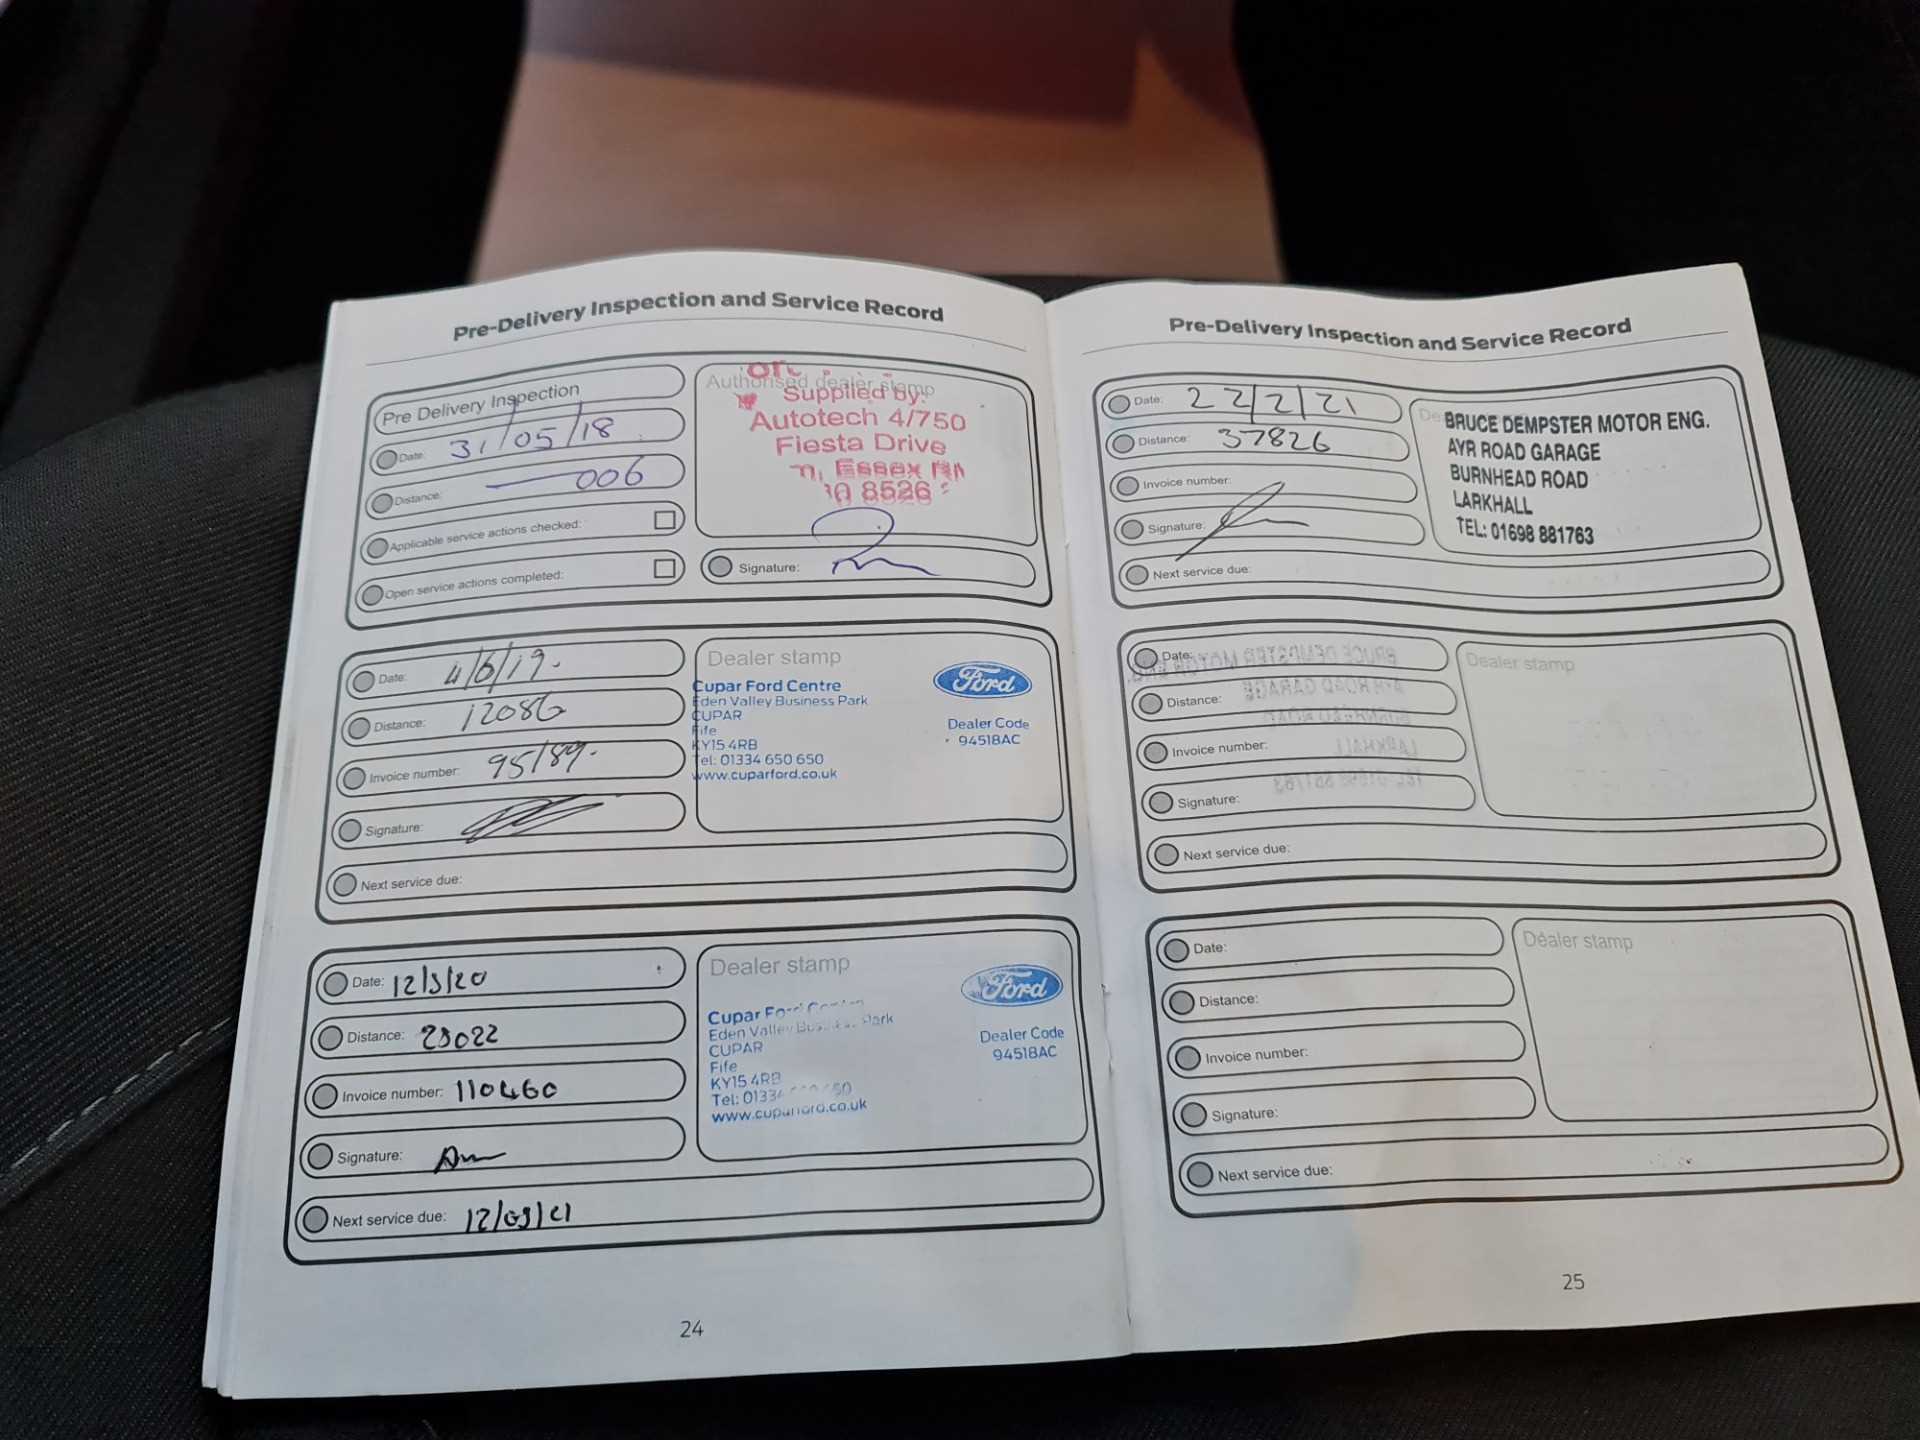 Pre-Delivery Inspection and Service Record
Pre Delivery Inspection
Date: 31/05/18
Distance: 006
Applicable service actions checked:
Open service actions completed:
Authorised dealer stamp
Supplied by:
Autotech 4/750
Fiesta Drive
Essex
8526
Signature:
Date: 4/6/19.
Distance: 12086
Invoice number: 95/89.
Signature:
Next service due:
Dealer stamp
Cupar Ford Centre
Eden Valley Business Park
CUPAR
Fife
KY15 4RB
Tel: 01334 650 650
www.cuparford.co.uk
Ford
Dealer Code
94518AC
Date: 12/3/20
Distance: 23022
Invoice number: 110460
Signature:
Next service due: 12/03/21
Dealer stamp
Cupar Ford Centre
Eden Valley Business Park
CUPAR
Fife
KY15 4RB
Tel: 01334 650 650
www.cuparford.co.uk
Ford
Dealer Code
94518AC
24
Pre-Delivery Inspection and Service Record
Date: 22/2/21
Distance: 37826
Invoice number:
Signature:
Next service due:
BRUCE DEMPSTER MOTOR ENG.
AYR ROAD GARAGE
BURNHEAD ROAD
LARKHALL
TEL: 01698 881763
Date:
Distance:
Invoice number:
Signature:
Next service due:
Dealer stamp
Date:
Distance:
Invoice number:
Signature:
Next service due:
Dealer stamp
25